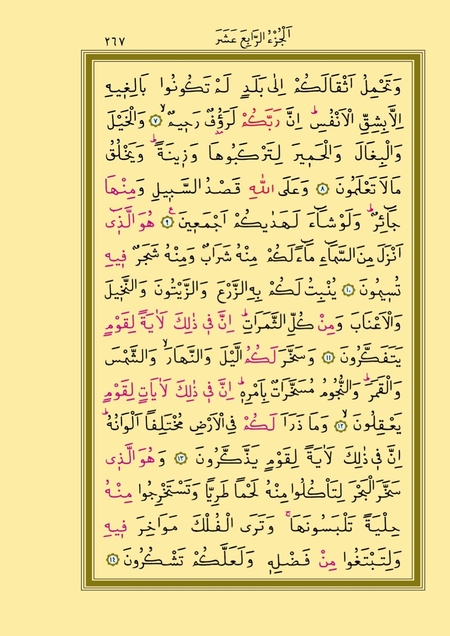 اَلْجُزْءُ الرَّابِعَ عَشَرَ
٢٦٧
وَتَحْمِلُ اَثْقَالَكُمْ اِلٰى بَلَدٍ لَمْ تَكُونُوا بَالِغٖيهِ
اِلَّا بِشِقِّ الْاَنْفُسِؕ اِنَّ رَبَّكُمْ لَرَؤُفٌ رَحٖيمٌۙ ﴿٧﴾ وَالْخَيْلَ
وَالْبِغَالَ وَالْحَمٖيرَ لِتَرْكَبُوهَا وَزٖينَةًؕ وَيَخْلُقُ
مَا لَا تَعْلَمُونَ ﴿٨﴾ وَعَلَى اللّٰهِ قَصْدُ السَّبٖيلِ وَمِنْهَا
جَٓائِرٌؕ وَلَوْ شَٓاءَ لَهَدٰيكُمْ اَجْمَعٖينَ۟ ﴿٩﴾ هُوَ الَّذٖٓى
اَنْزَلَ مِنَ السَّمَٓاءِ مَٓاءً لَكُمْ مِنْهُ شَرَابٌ وَمِنْهُ شَجَرٌ فٖيهِ
تُسٖيمُونَ ﴿١٠﴾ يُنْبِتُ لَكُمْ بِهِ الزَّرْعَ وَالزَّيْتُونَ وَالنَّخٖيلَ
وَالْاَعْنَابَ وَمِنْ كُلِّ الثَّمَرَاتِؕ اِنَّ فٖى ذٰلِكَ لَاٰيَةً لِقَوْمٍ
يَتَفَكَّرُونَ ﴿١١﴾ وَسَخَّرَ لَكُمُ الَّيْلَ وَالنَّهَارَۙ وَالشَّمْسَ
وَالْقَمَرَؕ وَالنُّجُومُ مُسَخَّرَاتٌ بِاَمْرِهٖؕ اِنَّ فٖى ذٰلِكَ لَاٰيَاتٍ لِقَوْمٍ
يَعْقِلُونَۙ ﴿١٢﴾ وَمَا ذَرَاَ لَكُمْ فِى الْاَرْضِ مُخْتَلِفًا اَلْوَانُهُؕ
اِنَّ فٖى ذٰلِكَ لَاٰيَةً لِقَوْمٍ يَذَّكَّرُونَ ﴿١٣﴾ وَهُوَ الَّذٖى
سَخَّرَ الْبَحْرَ لِتَاْكُلُوا مِنْهُ لَحْمًا طَرِيًّا وَتَسْتَخْرِجُوا مِنْهُ
حِلْيَةً تَلْبَسُونَهَاۚ وَتَرَى الْفُلْكَ مَوَاخِرَ فٖيهِ
وَلِتَبْتَغُوا مِنْ فَضْلِهٖ وَلَعَلَّكُمْ تَشْكُرُونَ ﴿١٤﴾